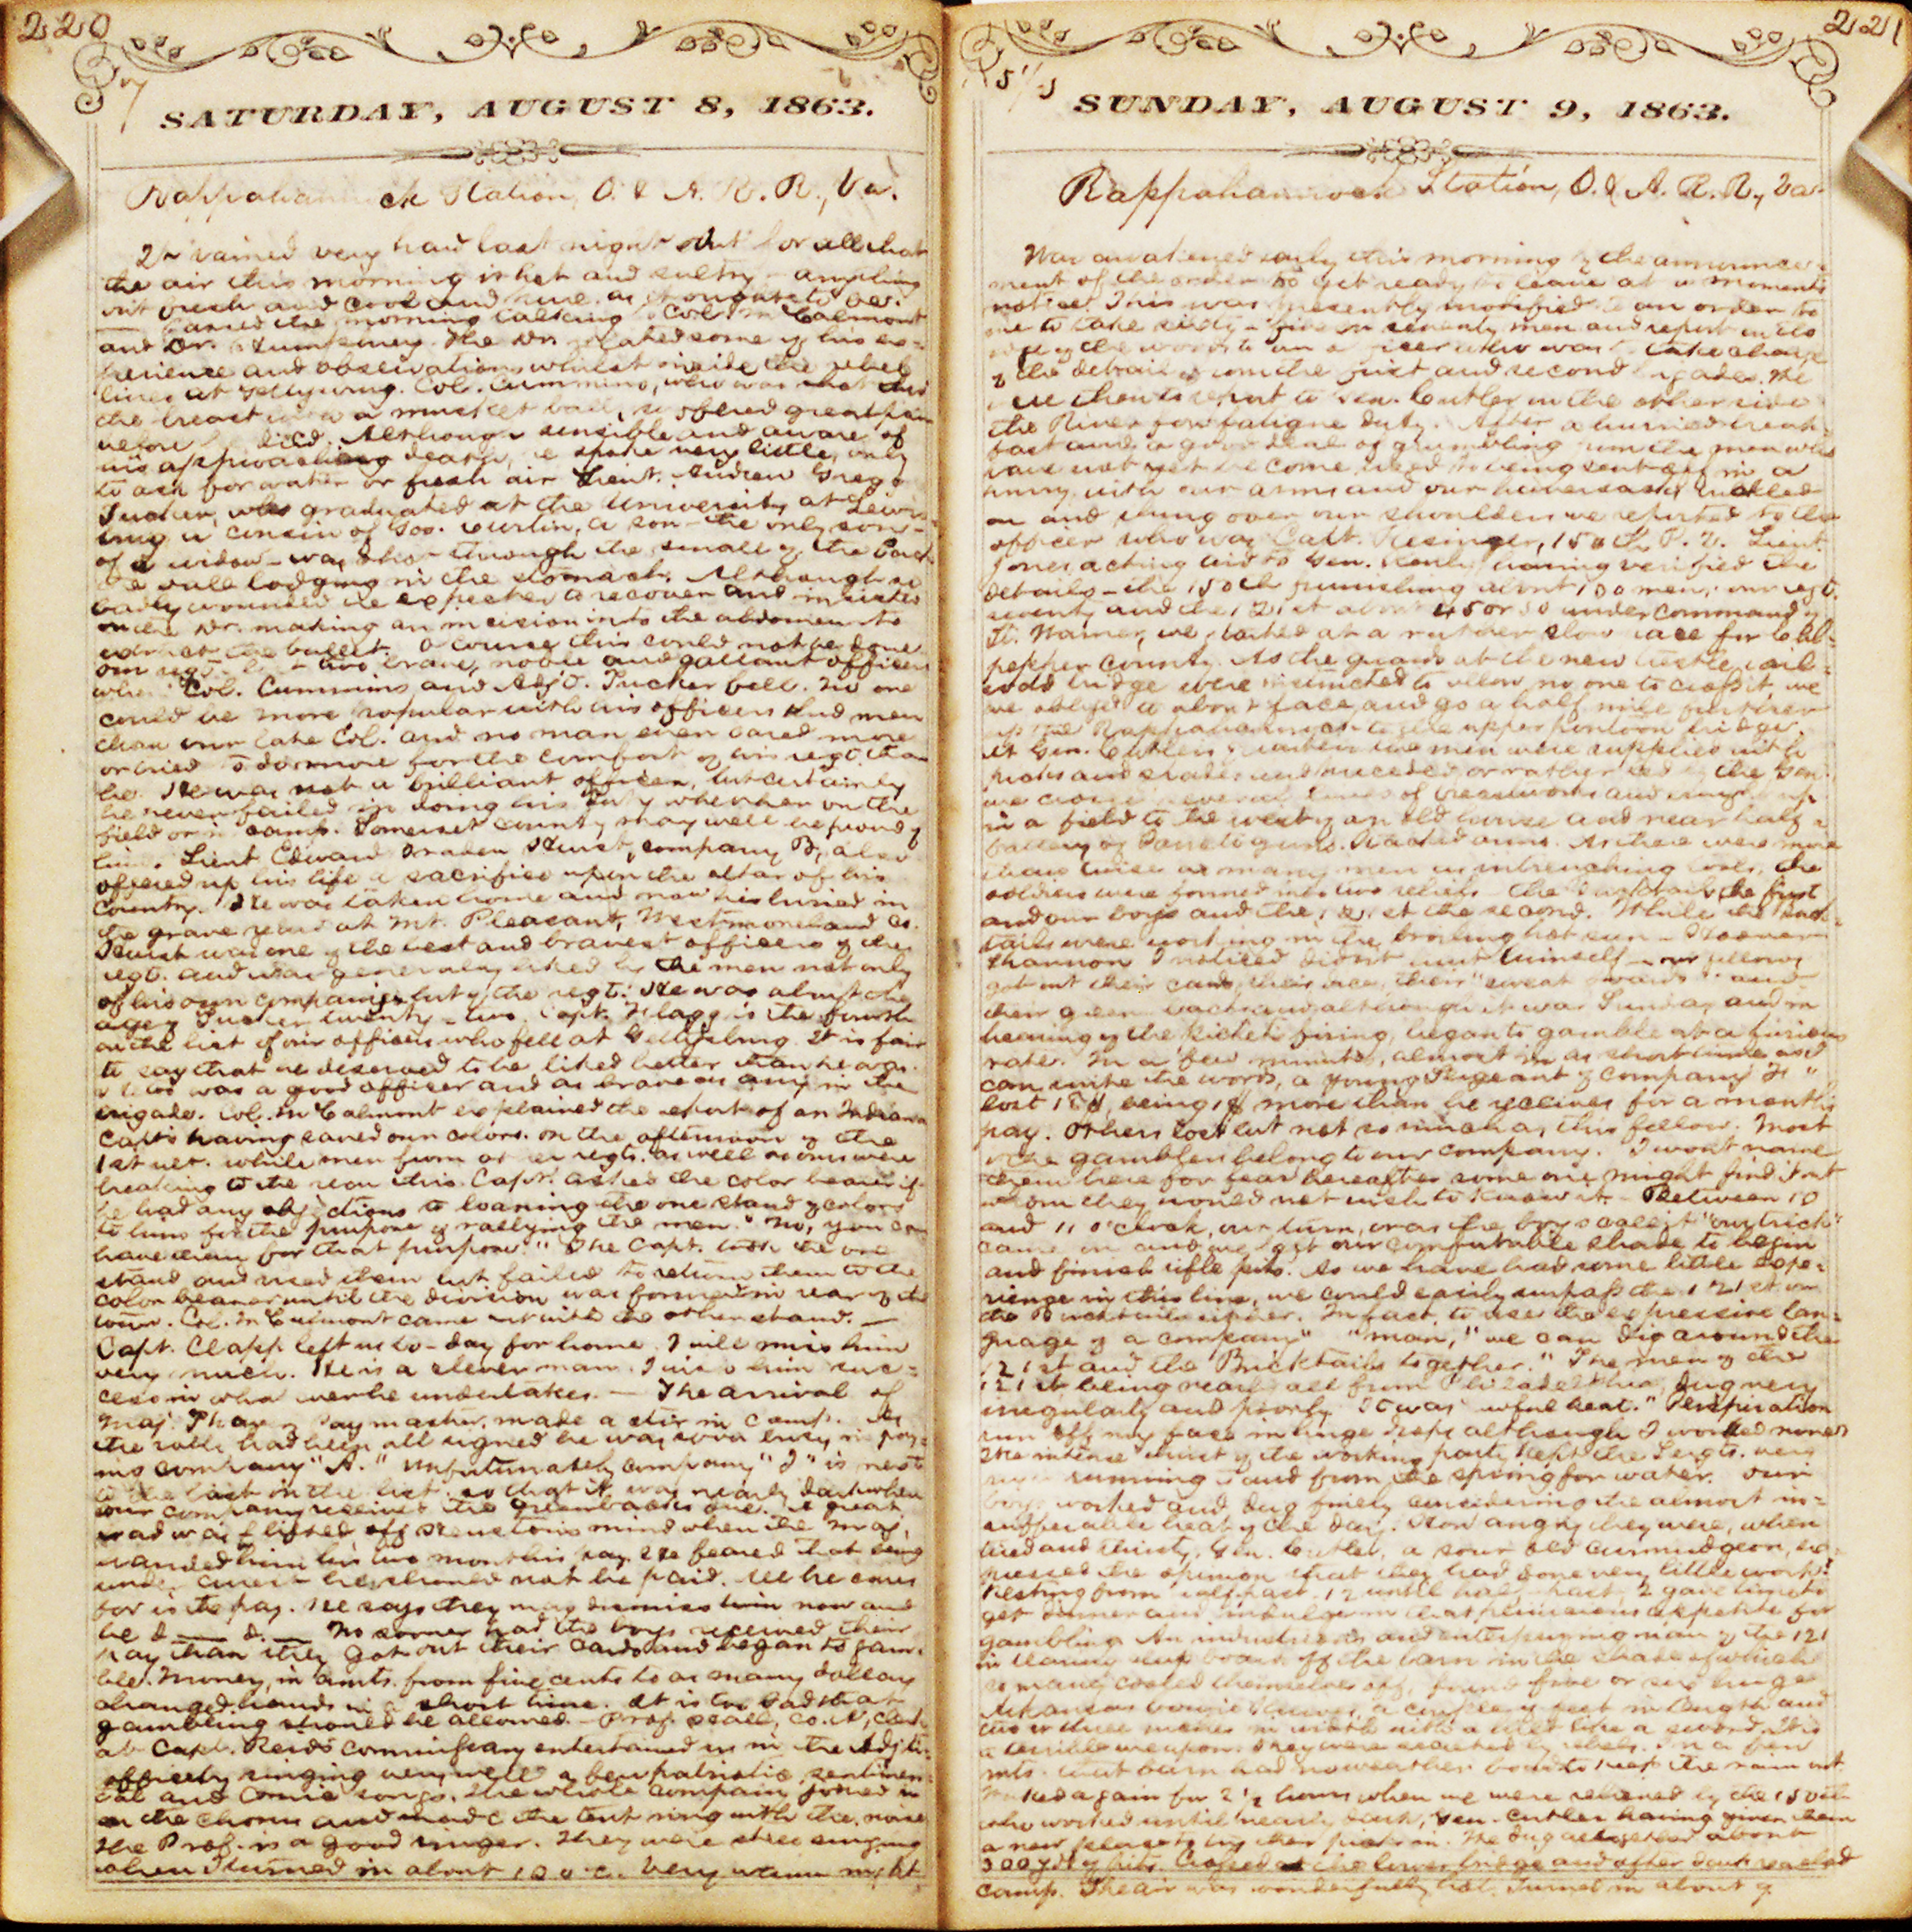 220
SATURDAY, AUGUST 8, 1863.
Rappahannock Station, O. & A. R. R., Va.
It rained very hard last night but for all that
the air this morning is hot and sultry – anything
but fresh and cool and nice as it ought to be.
– Passed the morning talking to Col. McCalmont
and Dr. The Dr. related some of his ex=
perience and observations whilst inside the rebel
lines at Gettysburg. Col. Cummins, who was shot thro
the breast with a musket ball, suffered great pain
before he died. Although sensible and aware of
his approaching death, he spoke very little, only
to ask for water or fresh air. Lieut. Andrew Gregg
Tucker, who graduated at the University at Lewis=
burg, a cousin of Gov. Curtin, a son – the only son –
of a widow – was shot through the small of the back
the ball lodging in the stomach. Although so
badly wounded he expected to recover and insisted
on the Dr. making an incision into the abdomen to
extract the bullet. Of course this could not be done.
Our regt. lost two brave, noble and gallant officers
when Col. Cummins and Adj't. Tucker fell. No one
could be more popular with his officers and men
than our late Col. and no man ever cared more
or tried to do more for the comfort of his regt. than
he. He was not a brilliant officer, but certainly
he never failed in doing his duty whether on the
field or in camp. Somerset county may well be proud of
him. Lieut. Edward Braden Hurst, company B, also
offered up his life a sacrifice upon the altar of his
country. He was taken home and now lies buried in
the grave yard at Mt. Pleasant, Westmoreland Co.
Hurst was one of the best and bravest officers of the
regt. and was generally liked by the men not only
of his own company but of the regt. He was about the
age of Tucker, twenty-two. Capt. Flagg is the fourth
on the list of our officers who fell at Gettysburg. It is fair
to say that he deserved to be liked better than he was.
He too was a good officer and as brave as any in the
brigade. Col. McCalmont explained the report of an Indiana
Capt's having saved our colors. On the afternoon of the
1st ult. while men from other regts. as well as ours were
breaking to the rear this Capt. asked the color bearer if
he had any objections to loaning the one stand of colors
to him for the purpose of rallying the men. "No, you can
have them for that purpose." The Capt. took the one
stand and used them but failed to return them to the
color bearer until the division was formed in rear of the
town. Col. McCalmont came out with the other stand. –
Capt. Clapp left us to-day for home. I will miss him
very much. He is a clever man. I wish him suc=
cess in whatever he undertakes. – The arrival of
Maj. Paymaster, made a stir in camp. As
the rolls had been all signed he was soon busy in pay=
ing company "A." Unfortunately company "I" is next
to the last in the list so that it was nearly dark when
our company received the greenbacks due. A great
load was lifted off mind when the Maj.
handed him his two months pay. He feared that being
under arrest he should not be paid. All he cares
for is the pay. He says they may dismiss him now and
be d–– d. – No sooner had the boys received their
pay than they got out their cards and began to gam=
ble. Money, in amts. from five cents to as many dollars
changed hands in a short time. It is too bad that
gambling should be allowed. – Prof. Co. A, clerk
at Capt. Reid's commissary entertained us in the Adj't's
office by singing very well a few patriotic, sentimen=
tal and comic songs. The whole company joined in
on the chorus and made the tent ring with the noise
The Prof. is a good singer. They were still singing
when I turned in about 10 o'c. Very warm night.
221
SUNDAY, AUGUST 9, 1863.
Rappahannock Station, O. & A. R. R., Va.
Was awakened early this morning by the announce=
ment of the order to get ready to leave at a moments
notice. This was presently modified to an order to
me to take sixty-five or seventy men and report in the
edge of the woods to an officer who was to take charge
of the detail from the first and second brigades. He
was then to report to Gen. Cutler on the other side
the River for fatigue duty. After a hurried break=
fast and a good deal of grumbling from the men who
have not yet become used to being sent off in a
hurry, with our arms and our haversacks
on and slung over our shoulders we reported to the
officer who was Capt. 150th P. V. Lieut.
Jones acting aid to Gen. Kenly having verified the
details – the 150th furnishing about 100 men, our regt.
seventy and the 121st about 45 or 50 under command of
Lt. Warner, we started at a rather slow pace for Cul=
pepper County. As the guards at the new trestle rail=
road bridge were instructed to allow no one to cross it, we
were obliged to about face and go a half mile further
up the Rappahannock to the upper pontoon bridge.
At Gen. Cutler's quarters the men were supplied with
picks and spades and preceded, or rather led by the Gen.
we crossed several lines of breastworks and
in a field to the west of an old house and near half a
battery of Parrott guns. Stacked arms. As there were more
than twice as many men as intrenching tools, the
soldiers were formed into two reliefs – the Bucktails the first
and our boys and the 121st the second. While the Buck=
tails were working in the broiling hot sun –
Shannon I noticed didn't hurt himself – our fellows
got out their cards, their dice, their "sweat boards" and
their greenbacks and although it was Sunday and in
hearing of the pickets firing, began to gamble at a furious
rate. In a few minutes, almost in as short time as I
can write the words, a young Sergeant of company "F"
lost 18$, being 1$ more than he receives for a month's
pay. Others lost but not so much as this fellow. Most
of the gamblers belong to our company. I won't name
them here for fear hereafter some one might find it out
whom they would not wish to know it. – Between 10
and 11 o'clock, our turn, or as the boys call it "our trick"
came on and we left our comfortable shade to begin
and finish rifle pits. As we have had some little expe=
rience in this line, we could easily surpass the 121st or
the Bucktails either. In fact, to use the expressive lan=
guage of a company " " man, "we can dig around the
121st and the Bricktails together." The men of the
121st being nearly all from Philadelphia, dug very
irregularly and poorly. It was awful heat. Perspiration
run off my face in huge drops although I worked none.
The intense thirst of the working party kept the Sergts. very
busy running to and from the spring for water. Our
boys worked and dug finely considering the almost in=
sufferable heat of the day. How angry they were, when
tired and thirsty, Gen. Cutler, a sour old curmudgeon, ex=
pressed the opinion that they had done very little work!
Resting from half past 12 until half past 2 gave time to
get dinner and indulge in that pernicious appetite for
gambling. An industrious and enterprising man of the 121
in tearing a board off the barn in the shade of which
so many cooled themselves off, found five or six huge
Arkansas bowie knives, a couple of feet in length and
two or three inches in width with a hilt like a sword. It is
a terrible weapon. They were secreted by rebels. In a few
mts. that barn had no weather board to keep the rain out.
Worked again for 2 1/2 hours when we were relieved by the 150th
who worked until nearly dark, Gen. Cutler having given them
a new place to try their picks in. We dug altogether about
300 yds of pits. Crossed at the lower bridge and after dark reached
camp. The air was wonderfully hot. Turned in about 9.